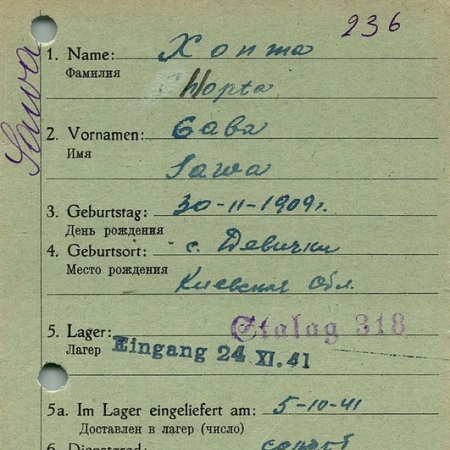 236
Sawa
1. Name: Хопта
Фамилия
Chopta
2. Vornamen: Сава
Имя
Sawa
3. Geburtstag: 30-11-1909 г.
День рождения
4. Geburtsort: с. Девички
Место рождения
Киевская обл.
5. Lager: Stalag 318
Лагер Eingang 24 XI. 41
5a. Im Lager eingeliefert am: 5-10-41
Доставлен в лагер (число)
6. Dienstgrad: